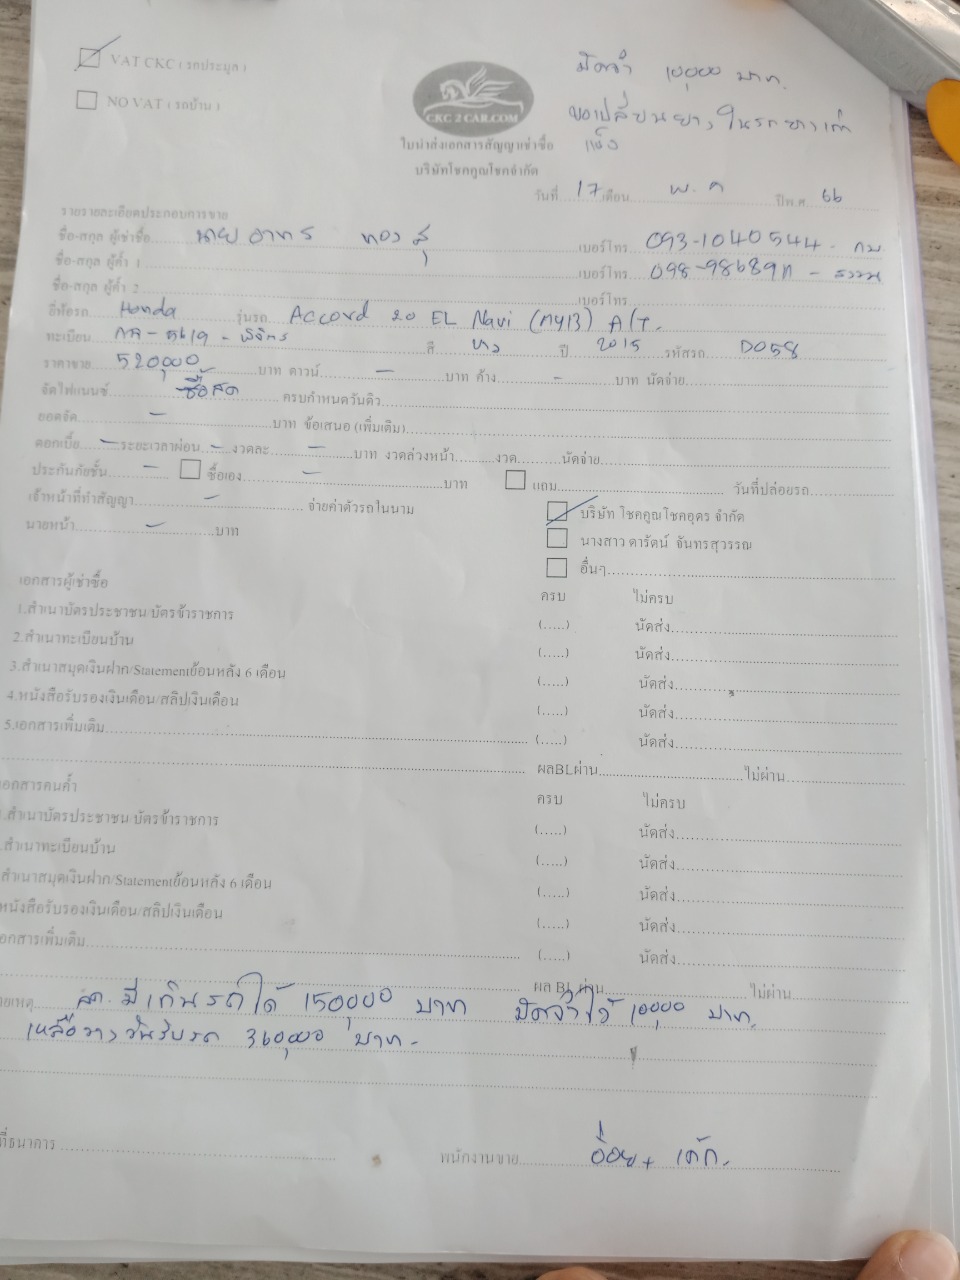 VAT CKC ( รถประมูล )
NO VAT ( รถบ้าน )
CKC 2 CAR.COM
มัดจำ 10,000 บาท.
ขอเปลี่ยนยาง ในรถยางเก่า
แข็ง
ใบนำส่งเอกสารสัญญาเช่าซื้อ
บริษัทโชคคูณโชคจำกัด
วันที่ 17 เดือน พ.ค ปีพ.ศ. 66
รายละเอียดประกอบการขาย
ชื่อ-สกุล ผู้เช่าซื้อ นาย อาทร ทองสุ เบอร์โทร. 093-1040544
ชื่อ-สกุล ผู้ค้ำ 1 เบอร์โทร.
ชื่อ-สกุล ผู้ค้ำ 2 เบอร์โทร
ยี่ห้อรถ Honda รุ่นรถ Accord 20 EL Navi (MY13) A/T.
ทะเบียน 5619 - พิจิตร สี ขาว ปี 2015 รหัสรถ D058
ราคาขาย 520,000 บาท ดาวน์ - บาท ค้าง - บาท นัดจ่าย
จัดไฟแนนซ์ ซื้อสด ครบกำหนดวันดิว
ยอดจัด - บาท ข้อเสนอ (เพิ่มเติม)
ดอกเบี้ย - ระยะเวลาผ่อน - งวดละ - บาท งวดล่วงหน้า งวด นัดจ่าย
ประกันภัยชั้น - ซื้อเอง - บาท แถม วันที่ปล่อยรถ
เจ้าหน้าที่ทำสัญญา - จ่ายค่าตัวรถในนาม บริษัท โชคคูณโชคอุดร จำกัด
นายหน้า - บาท นางสาว ดารัตน์ จันทรสุวรรณ
อื่นๆ
เอกสารผู้เช่าซื้อ ครบ ไม่ครบ
1.สำเนาบัตรประชาชน/บัตรข้าราชการ (.....) นัดส่ง
2.สำเนาทะเบียนบ้าน (.....) นัดส่ง
3.สำเนาสมุดเงินฝาก/Statementย้อนหลัง 6 เดือน (.....) นัดส่ง
4.หนังสือรับรองเงินเดือน/สลิปเงินเดือน (.....) นัดส่ง
5.เอกสารเพิ่มเติม (.....) นัดส่ง
ผลBLผ่าน ไม่ผ่าน
เอกสารคนค้ำ ครบ ไม่ครบ
.สำเนาบัตรประชาชน/บัตรข้าราชการ (.....) นัดส่ง
.สำเนาทะเบียนบ้าน (.....) นัดส่ง
สำเนาสมุดเงินฝาก/Statementย้อนหลัง 6 เดือน (.....) นัดส่ง
หนังสือรับรองเงินเดือน/สลิปเงินเดือน (.....) นัดส่ง
เอกสารเพิ่มเติม (.....) นัดส่ง
ผล BL ผ่าน ไม่ผ่าน
ายเหตุ ลค. มี เทิร์นรถได้ 150,000 บาท มัดจำไว้ 10,000 บาท.
เหลือวางวันรับรถ 360,000 บาท.
ที่ธนาคาร พนักงานขาย อ้อย + เค้ก.